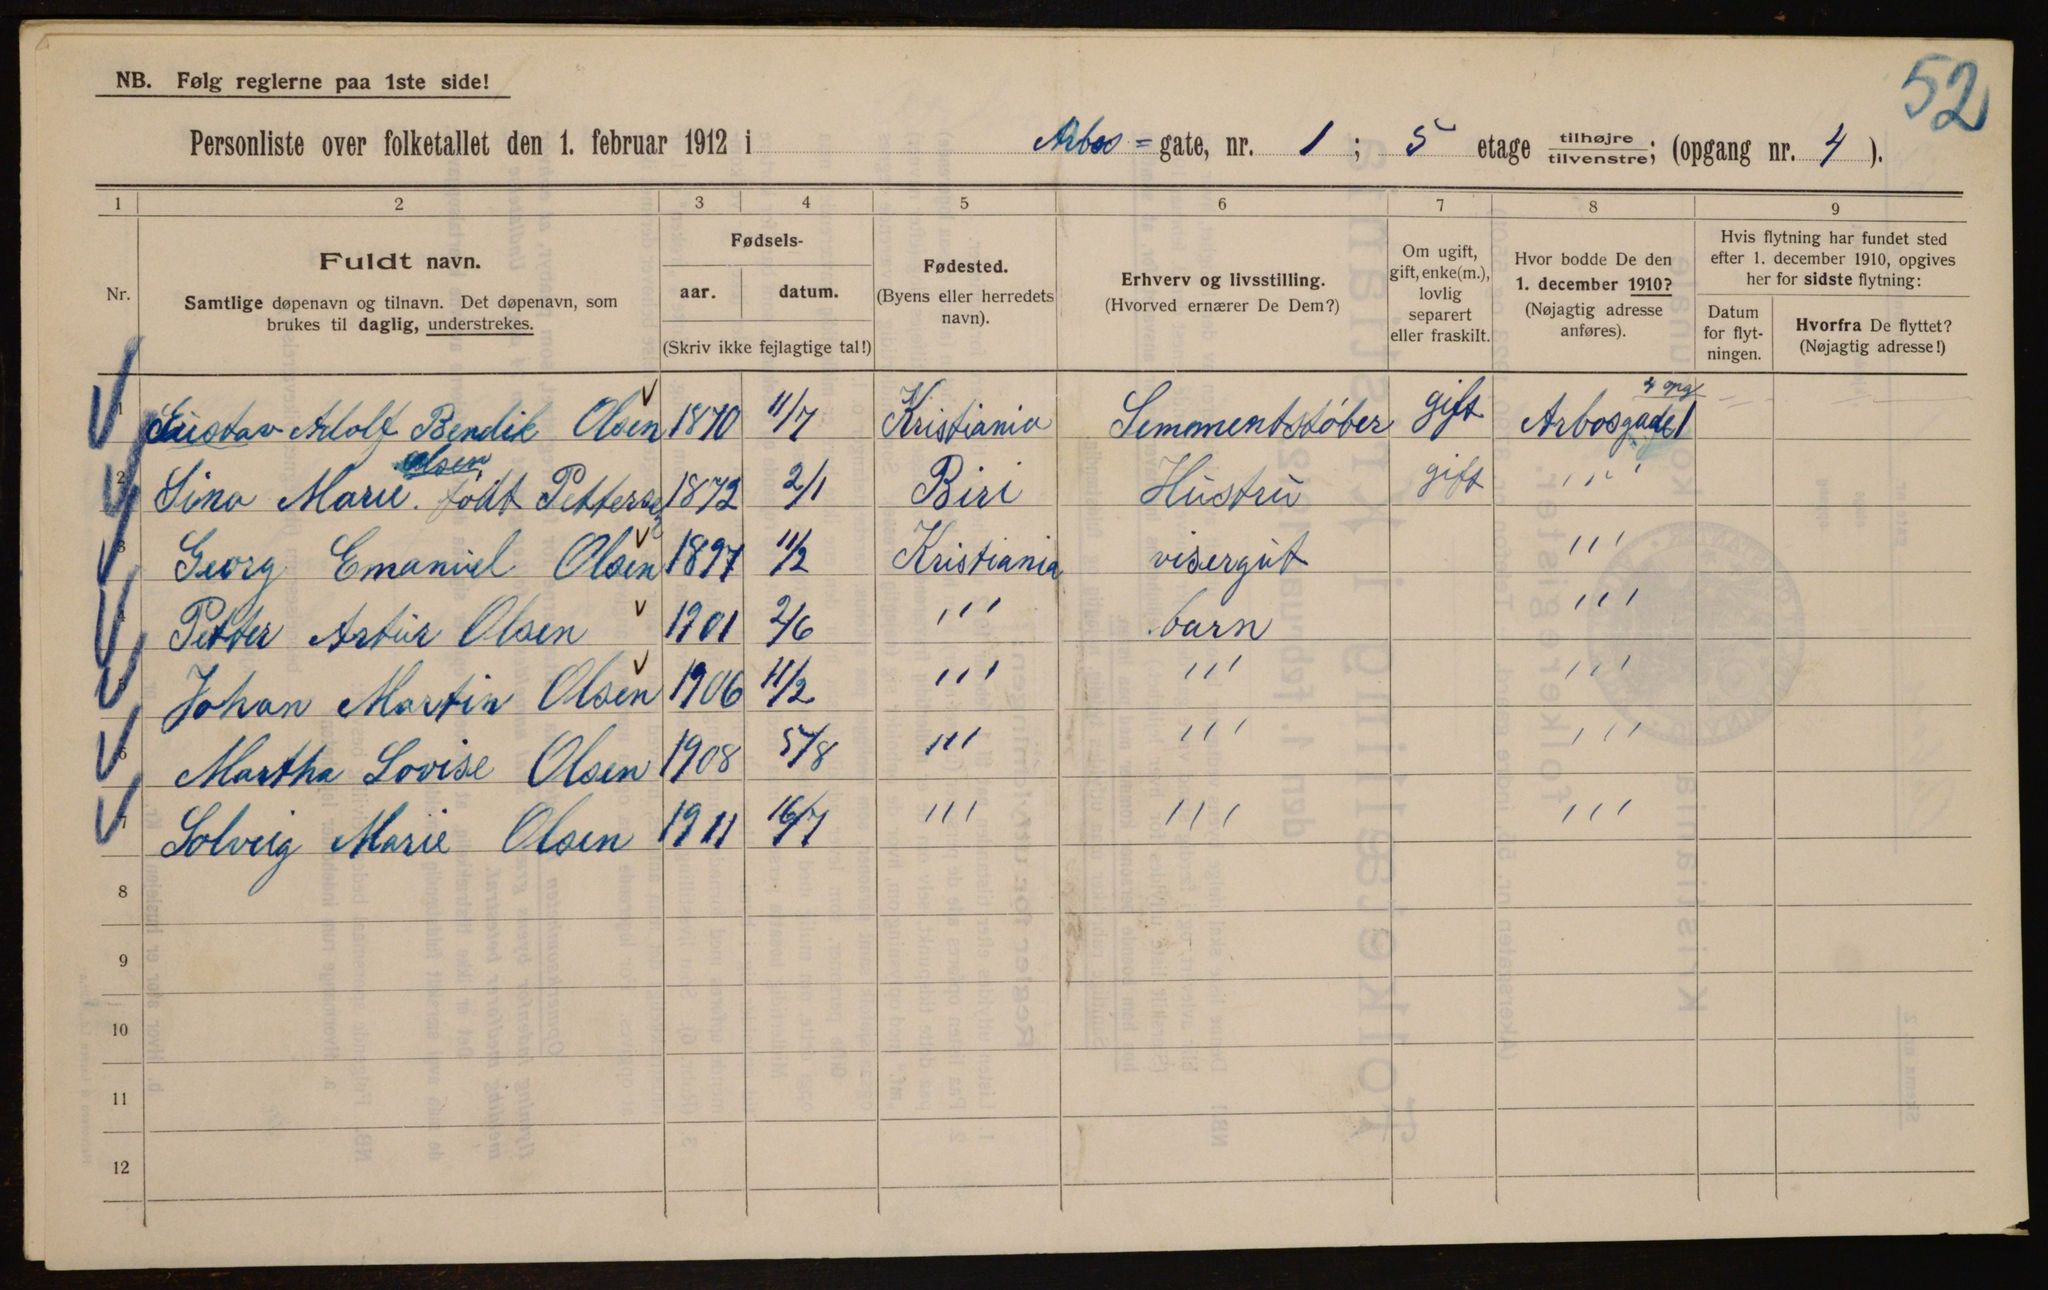 52
NB. Følg reglerne paa 1ste side!
Personliste over folketallet den 1. februar 1912 i Arbos = gate, nr. 1 ; 5 etage tilhøjre tilvenstre; (opgang nr. 4 ).
1 2 3 4 5 6 7 8 9
Nr.
Fuldt navn.
Samtlige døpenavn og tilnavn. Det døpenavn, som
brukes til daglig, understrekes.
Fødsels-
aar. datum.
(Skriv ikke fejlagtige tal!)
Fødested.
(Byens eller herredets
navn).
Erhverv og livsstilling.
(Hvorved ernærer De Dem?)
Om ugift,
gift, enke(m.),
lovlig
separert
eller fraskilt.
Hvor bodde De den
1. december 1910?
(Nøjagtig adresse
anføres).
Hvis flytning har fundet sted
efter 1. december 1910, opgives
her for sidste flytning:
Datum
for flyt-
ningen.
Hvorfra De flyttet?
(Nøjagtig adresse!)
4 opg
1 Gustav Adolf Bendik Olsen 1870 11/7 Kristiania Semmentstøber gift Arbosgade 1
olsen
2 Sina Marie. født Pettersen 1872 2/1 Biri Hustru gift " '
3 Georg Emanuel Olsen 1897 11/2 Kristiania visergut " '
4 Petter Artur Olsen 1901 2/6 " ' barn " '
5 Johan Martin Olsen 1906 11/2 " ' " ' " '
6 Martha Lovise Olsen 1908 5/8 " ' " ' " '
7 Solveig Marie Olsen 1911 16/7 " ' " ' " '
8
9
10
11
12